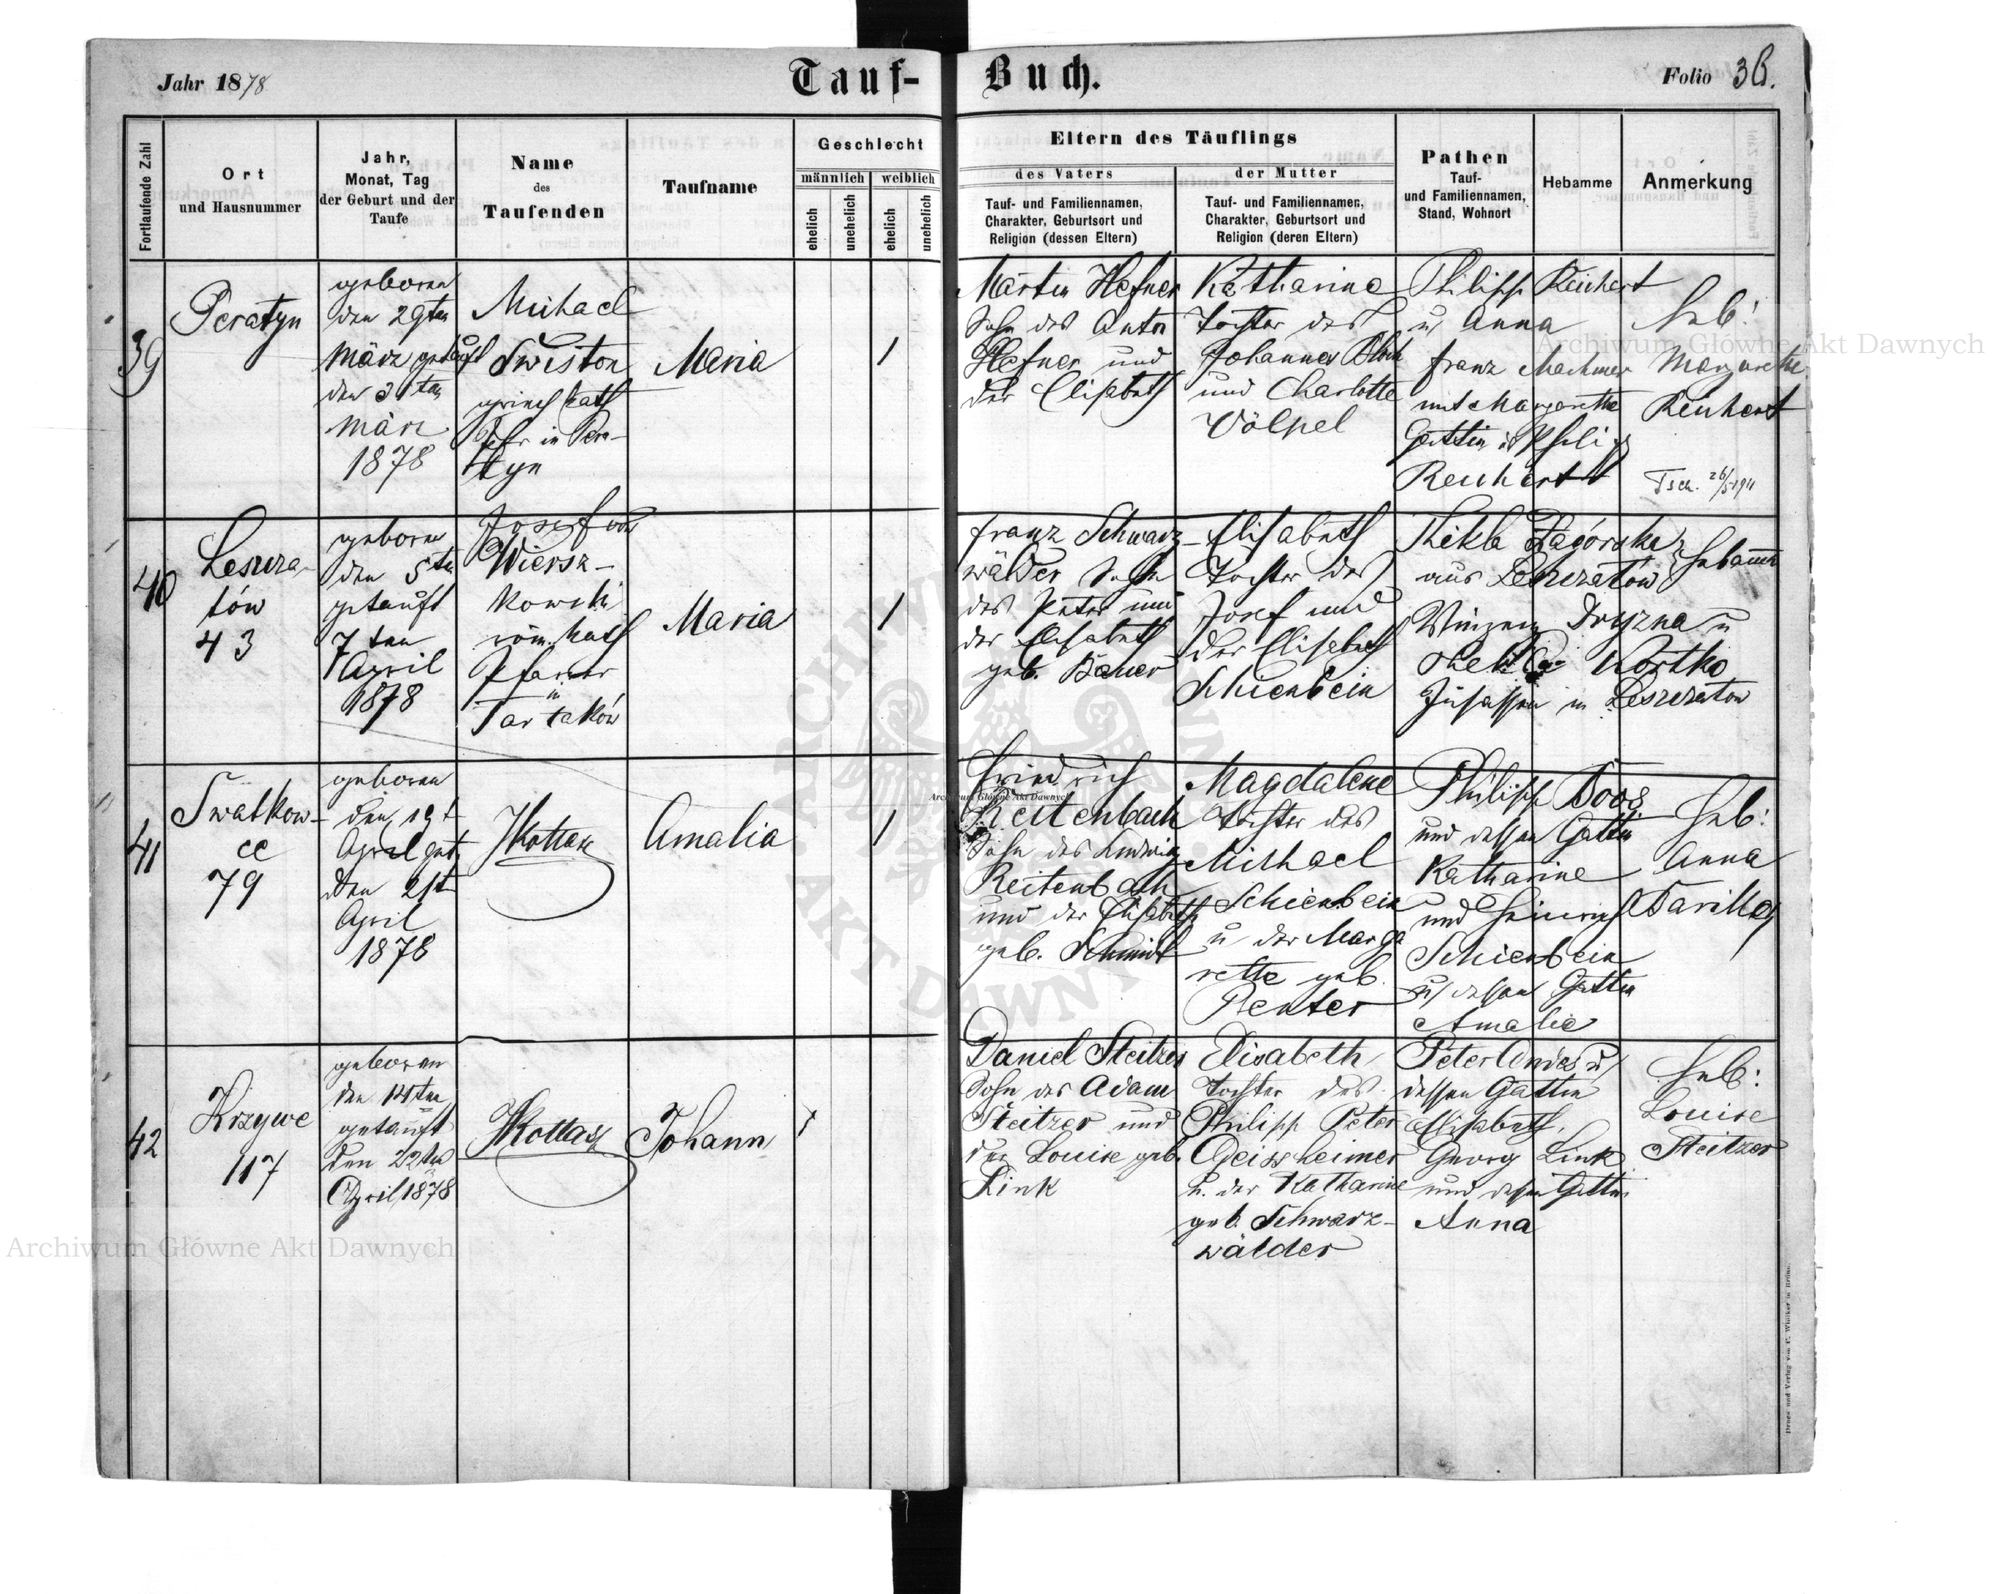 Jahr 1878
Tauf-Buch.
Folio 36.
Fortlaufende Zahl
Ort
und Hausnummer
Jahr,
Monat, Tag
der Geburt und der
Taufe
Name
des
Taufenden
Taufname
Geschlecht
männlich
weiblich
ehelich
unehelich
ehelich
unehelich
Eltern des Täuflings
des Vaters
Tauf- und Familiennamen,
Charakter, Geburtsort und
Religion (dessen Eltern)
der Mutter
Tauf- und Familiennamen,
Charakter, Geburtsort und
Religion (deren Eltern)
Pathen
Tauf-
und Familiennamen,
Stand, Wohnort
Hebamme
Anmerkung
39
Peratyn
geboren
den 29ten
März getauft
den 31ten
März
1878
Michael
Swiston
griech kath
Pfr in Pera-
tyn
Maria
1
Martin Hefner
Sohn des Anton
Hefner und
der Elisabeth
Katharina
Tochter des
Johannes
und Charlotte
Völpel
Philipp Reichert
u Anna
Franz Machmer
mit Margarethe
Gattin d Philipp
Reichert
Heb:
Margarethe
Reichert
40
Leszcza-
tów
43
geboren
den 5ten
getauft
7ten
April
1878
Josef von
Wiersz-
kowski
röm. kath
Pfarrer
in
Tartaków
Maria
1
Franz Schwarz-
wälder Sohn
des Peter und
der Elisabeth
geb. Bauer
Elisabeth
Tochter des
Josef und
der Elisabeth
Schienbein
Thekla Zagórska
aus Leszczatów
Winzenz Dryzna u
Kortko
Insassen in Leszczatow
Hebamme
41
Swatkow-
ce
79
geboren
den 19t
April get.
den 21t
April
1878
JKottasz
Amalia
1
Friedrich
Reitenbach
Sohn des Ludwig
Reitenbach
und der Elisabeth
geb. Schmidt
Magdalene
Tochter des
Michael
Schienbein
u der Marga
rethe geb.
Renter
Philipp Boos
und dessen Gattin
Katharine
und Heinrich
Schienbein
u/ dessen Gattin
Amalie
Heb:
Anna
42
Krzywe
117
geboren
den 14ten
getauft
den 22ten
April 1878
JKottasz
Johann
1
Daniel Steitzer
Sohn des Adam
Steitzer und
der Louise geb.
Link
Elisabeth
Tochter des
Philipp Peter
Deissheimer
u. der Katharine
geb. Schwarz-
wälder
Peter Andes u/
dessen Gattin
Elisabeth,
Georg Link
und dessen Gattin
Anna
Heb:
Louise
Steitzer
Druck und Verlag von C. Winiker in Brünn.
Archiwum Główne Akt Dawnych
Archiwum Główne Akt Dawnych
Archiwum Główne Akt Dawnych
ARCHIWUM GŁÓWNE AKT DAWNYCH